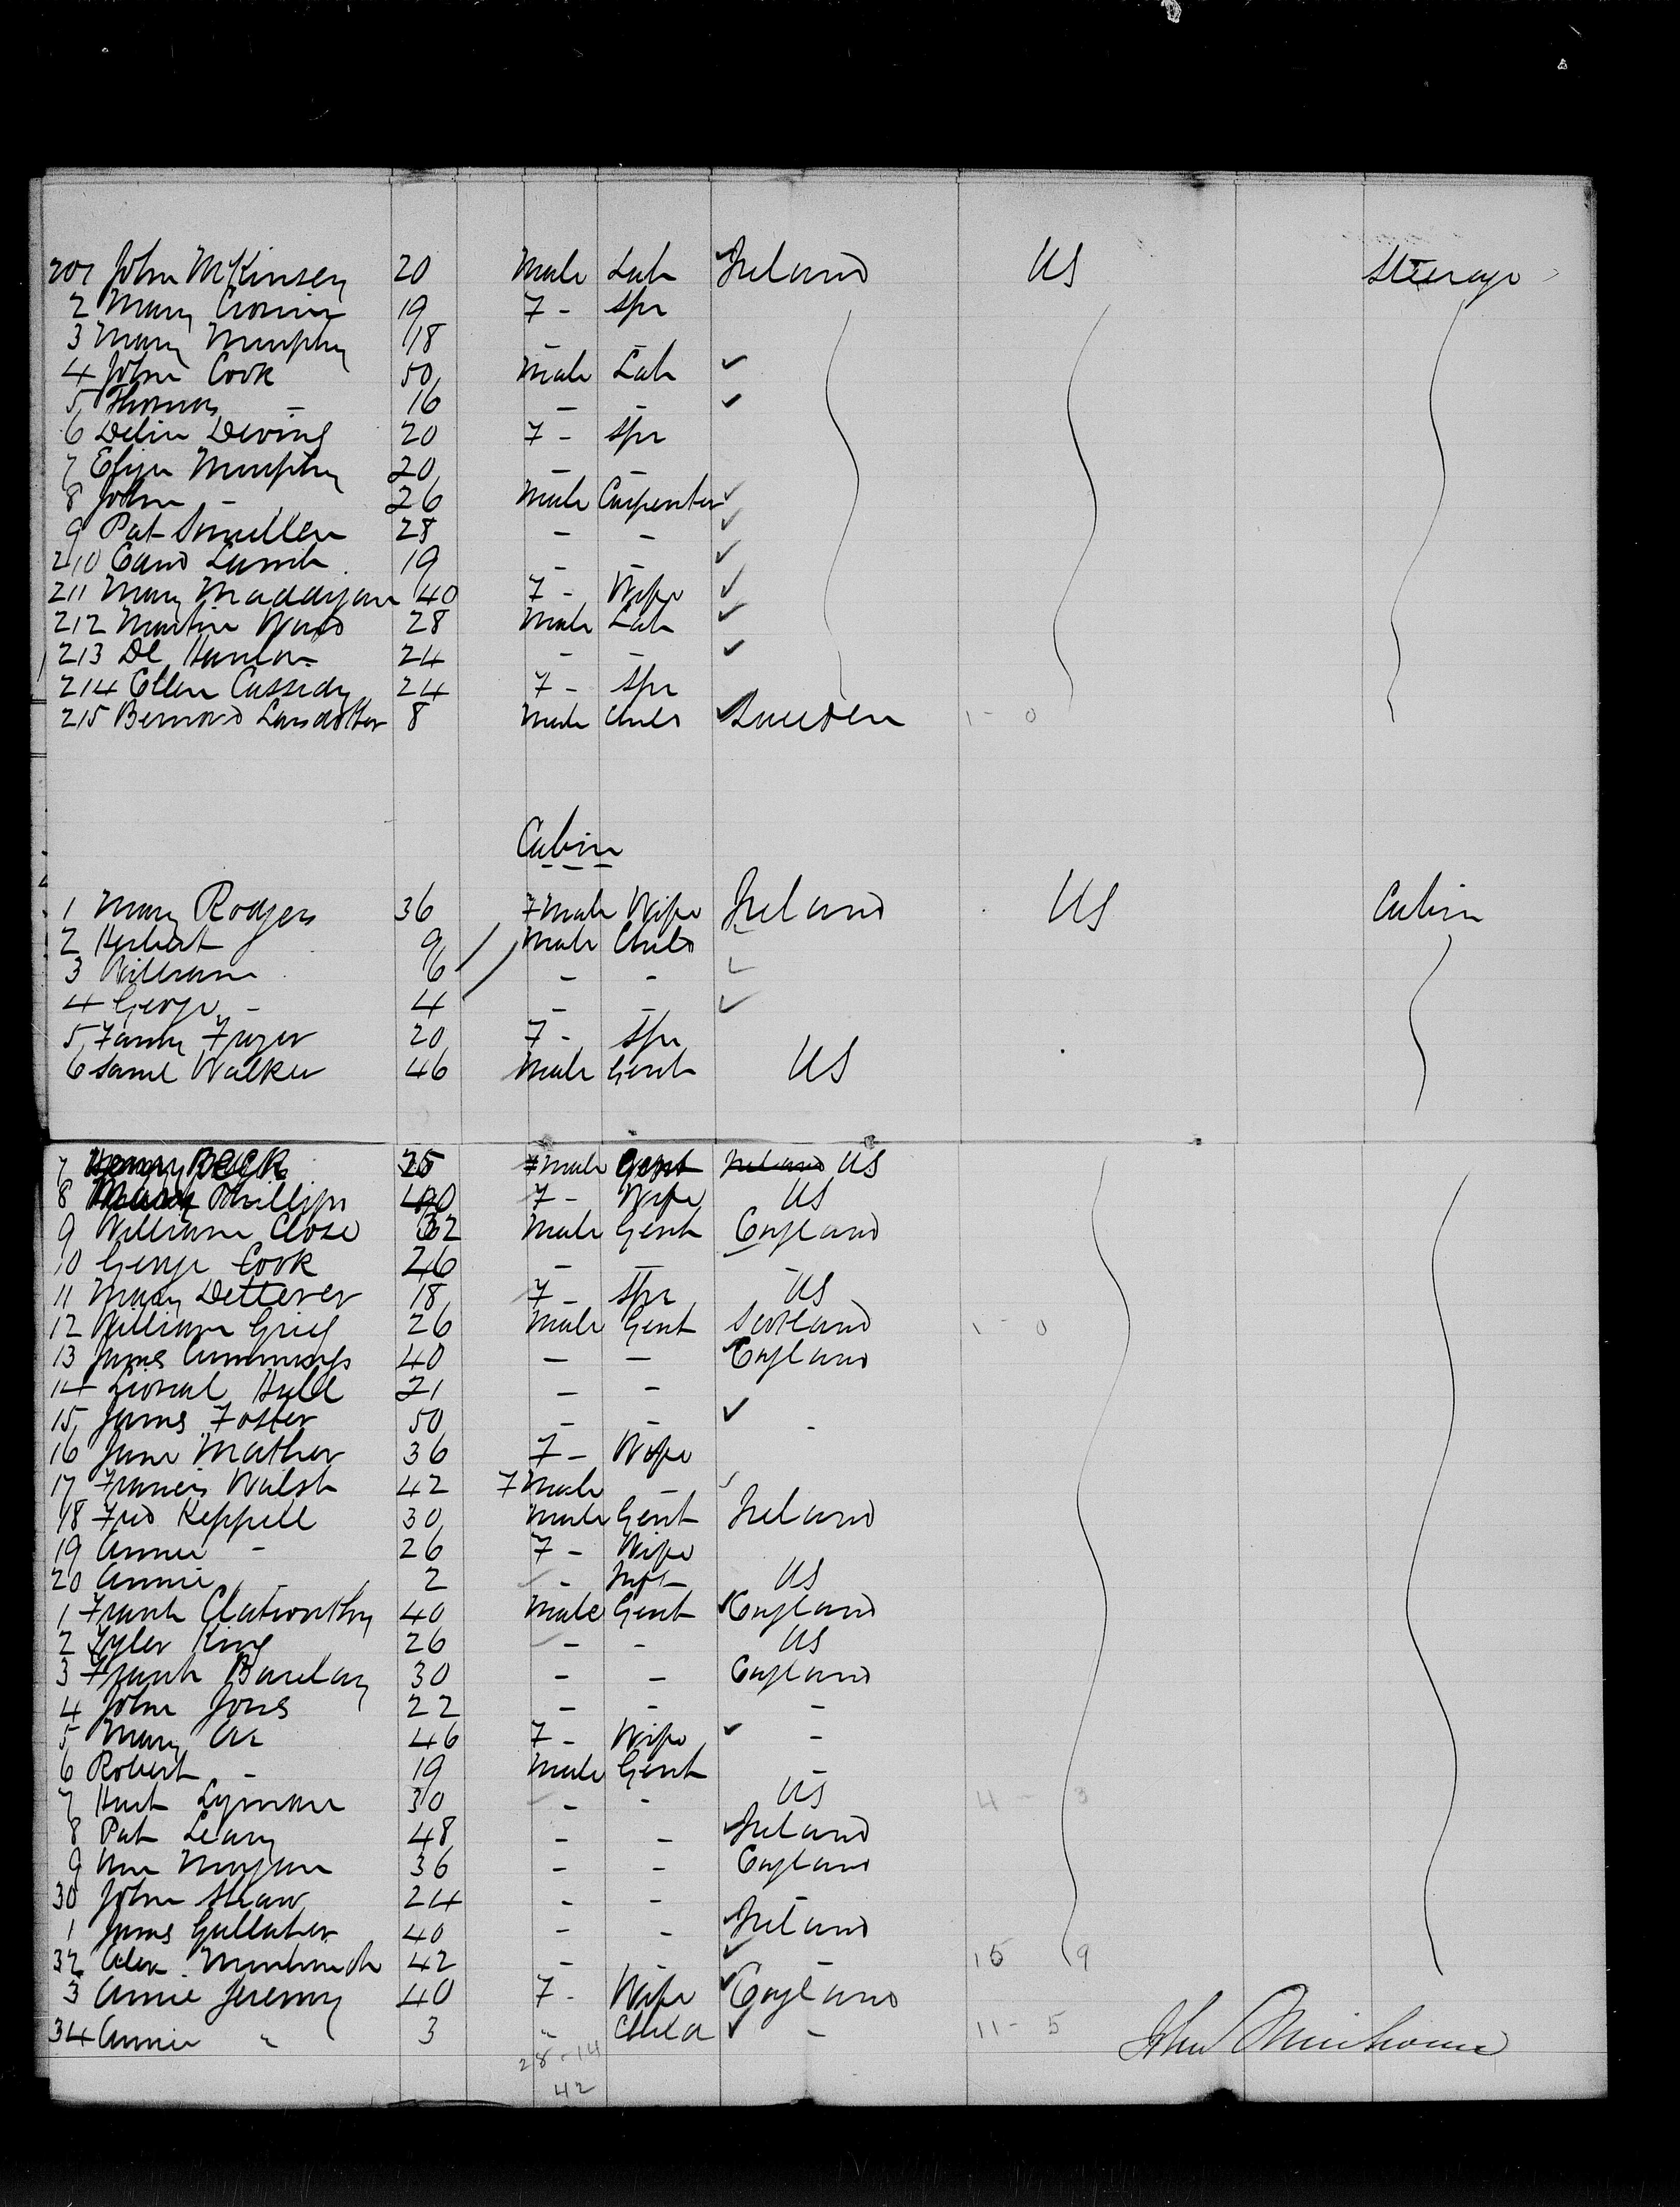 201 John McKinsey 20 Male Lab Ireland US Steerage
2 Mary Cronin 19 F - Spr
3 Mary Murphy 18 - -
4 John Cook 50 Male Lab
5 Thomas - 16 - -
6 Delia Devins 20 F - Spr
7 Eliza Murphy 20 - -
8 John - 26 Male Carpenter
9 Pat Smullen 28 - -
210 Lamb 19 - -
211 Mary Maddigan 40 F - Wife
212 Martin Ward 28 Male Lab
213 Hanlon 24 - -
214 Ellen Cassidy 24 F - Spr
215 Bernard Larsdotter 8 Male Child Sweden 1 - 0
Cabin
1 Mary Rodgers 36 Fmale Wife Ireland US Cabin
2 Herbert 9 Male Child
3 William 6 - -
4 George - 4 - -
5 Fanny Fryer 20 F - Spr
6 Saml Walker 46 Male Gent US
7 Henry Beck 25 male Gent Ireland US
8 Mary Phillips 40 F - Wife US
9 William Close 32 Male Gent England
10 George Cook 26 - - -
11 Mary Detterer 18 F - Spr US
12 William Grieg 26 Male Gent Scotland 1 - 0
13 James Cummings 40 - - England
14 Lional Hull 21 - -
15 James Foster 50 - - -
16 Jane Mather 36 F - Wife
17 Francis Walsh 42 Fmale -
18 Fred Keppell 30 Male Gent Ireland
19 Annie - 26 F - Wife
20 Annie - 2 - Inft US
1 Frank Clatworthy 40 Male Gent England
2 Tyler King 26 - - US
3 Frank Barclay 30 - - England
4 John Jones 22 - - -
5 Mary 46 F - Wife -
6 Robert - 19 Male Gent -
7 Hart Lyman 30 - - US 4 - 3
8 Pat Leary 48 - - Ireland
9 Wm Morgan 36 - - England
30 John Shaw 24 - - -
1 James Gallaher 40 - - Ireland
32 Alex 42 - - 15 9
3 Annie Jeremy 40 F - Wife England
34 Annie " 3 " Child - 11 - 5 John
28 - 14
42